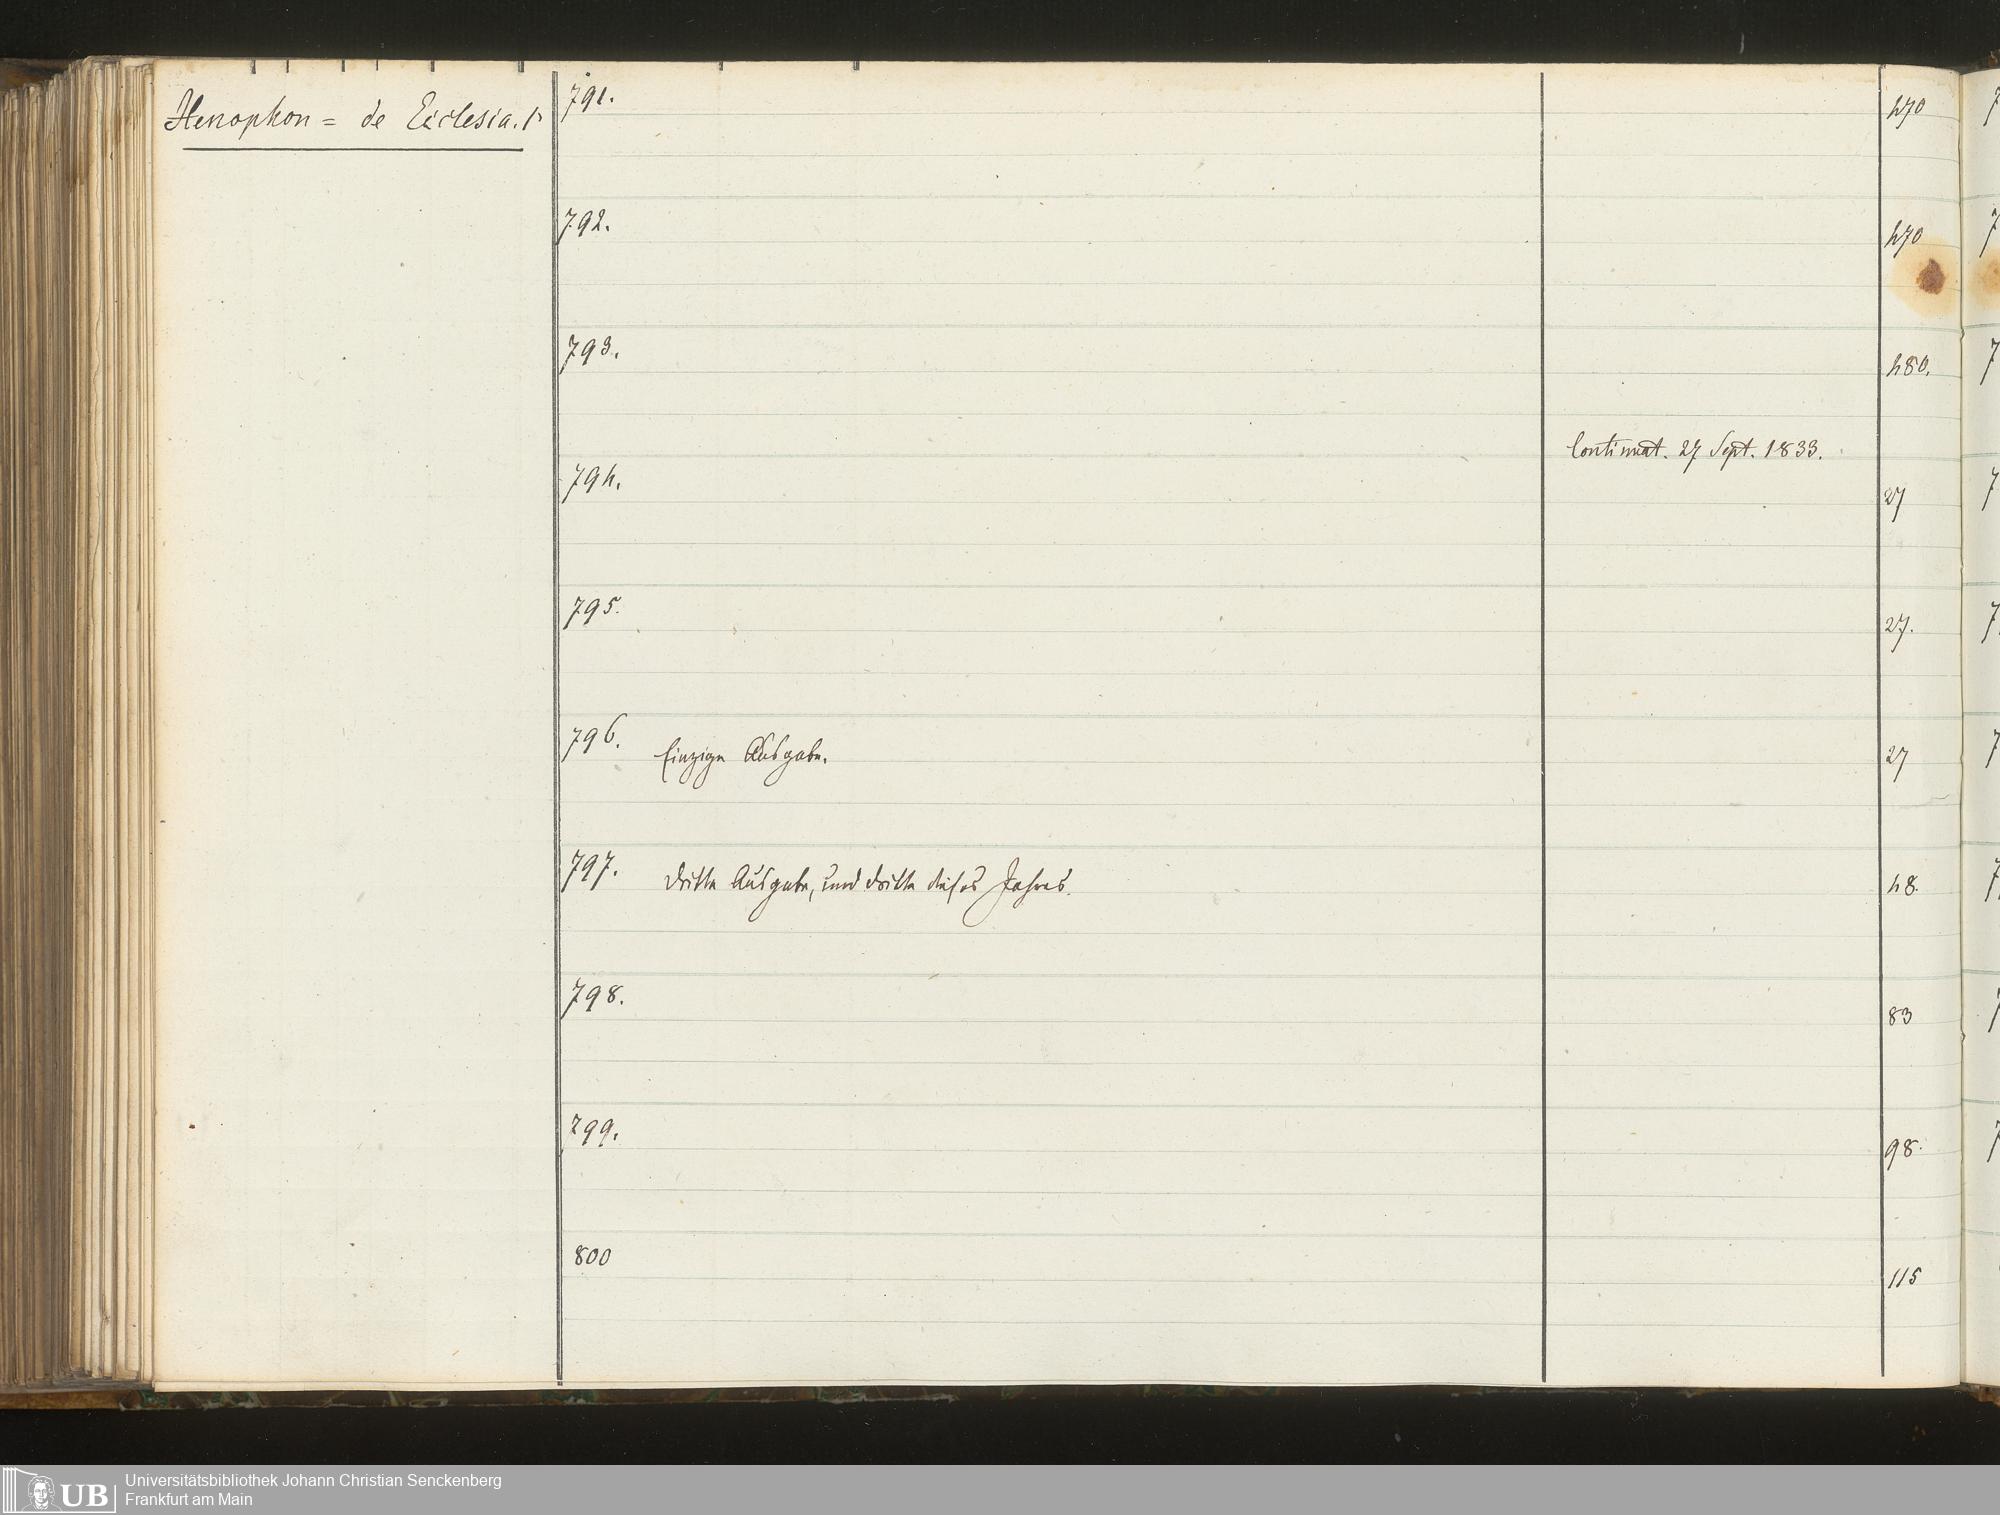 Xenophon = de Ecclesia. 1
791.
470
792.
470
793.
480.
Continuat. 27 Sept. 1833.
794.
27
795.
27.
796. Einzige Ausgabe.
27
797. dritte Ausgabe, und dritte dieses Jahres.
48.
798.
83
799.
98.
800
115
UB
Universitätsbibliothek Johann Christian Senckenberg
Frankfurt am Main